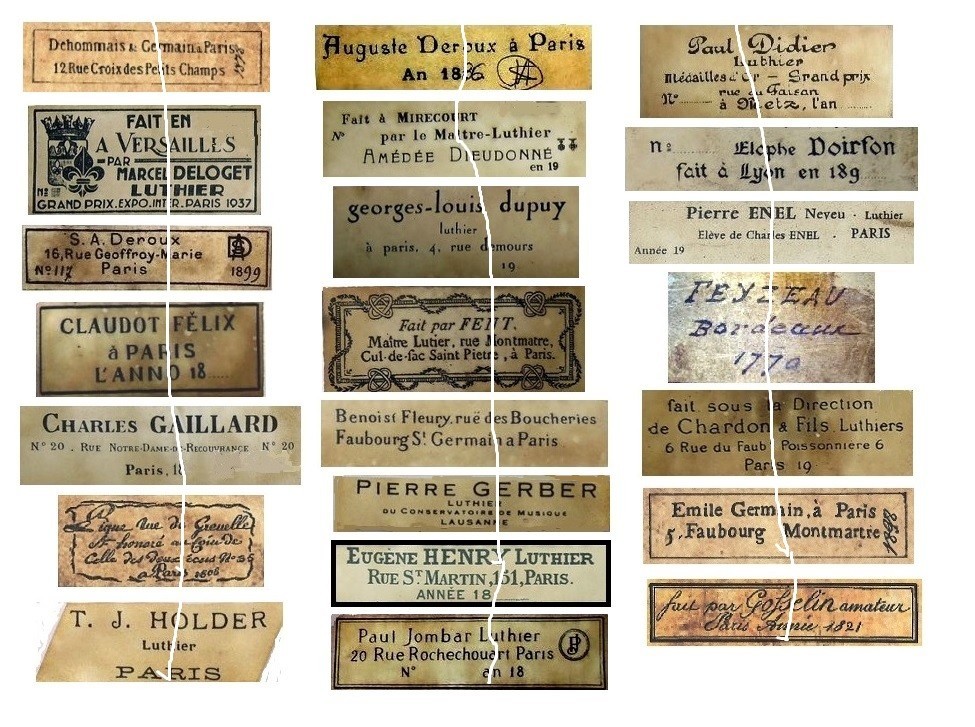 Dehommais & Germain à Paris
12 Rue Croix des Petits Champs
FAIT EN
A VERSAILLES
PAR
MARCEL DELOGET
LUTHIER
GRAND PRIX. EXPO. INTER. PARIS 1937
S. A. Deroux
16, Rue Geoffroy-Marie
Nº 117 Paris 1899
CLAUDOT FÉLIX
à PARIS
L'ANNO 18
CHARLES GAILLARD
Nº 20 . RUE NOTRE-DAME-DE-RECOUVRANCE Nº 20
Paris, 18
Pique Rue de Grenelle
St honoré au Coin de
Celle des deux écus Nº 35
a Paris 1808
T. J. HOLDER
Luthier
PARIS
Auguste Deroux à Paris
An 1886
Fait à MIRECOURT
Nº par le Maître-Luthier
AMÉDÉE DIEUDONNÉ
en 19
georges-louis dupuy
luthier
à paris, 4, rue demours
19
Fait par FENT.
Maître Lutier, rue Montmatre,
Cul-de-sac Saint Pietre, à Paris.
Benoist Fleury, rue des Boucheries
Faubourg St. Germain a Paris
PIERRE GERBER
LUTHIER
DU CONSERVATOIRE DE MUSIQUE
LAUSANNE
EUGÈNE HENRY LUTHIER
RUE ST MARTIN, 151, PARIS.
ANNÉE 18
Paul Jombar Luthier
20 Rue Rochechouart Paris
Nº an 18
Paul Didier
Luthier
Médailles d'Or – Grand prix
rue du Faisan
Nº à Metz, l'an
nº Elophe Doirson
fait à Lyon en 189
Pierre ENEL Neveu · Luthier
Elève de Charles ENEL . PARIS
Année 19
FEYZEAU
Bordeaux
1770
fait sous la Direction
de Chardon & Fils Luthiers
6 Rue du Faub Poissonnière 6
Paris 19
Emile Germain, à Paris
5, Faubourg Montmartre 1898
fait par Gosselin amateur
Paris Année 1821